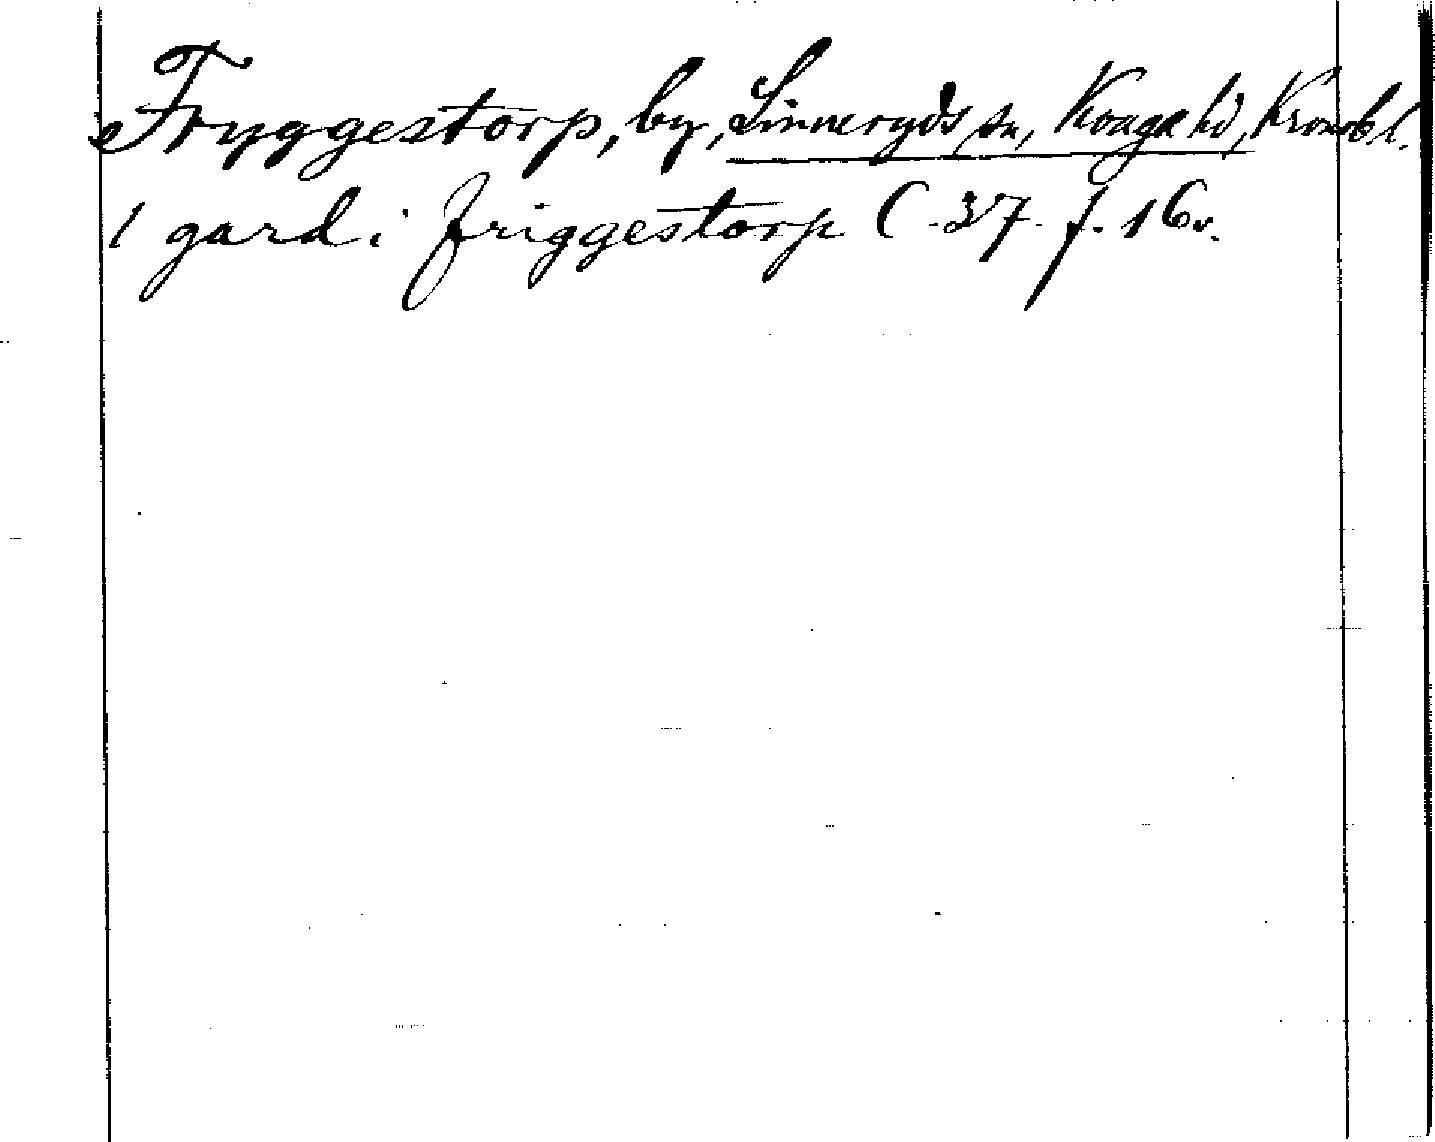 Fryggestorp, by, Linneryds sn, Konga hd, Kronobl.
1 gard i friggestorp C 37 f. 16v.